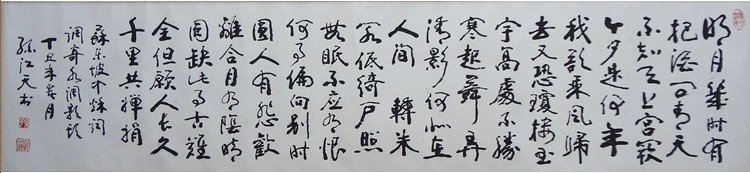 明月幾時有
把酒问青天
不知天上宫阙
今夕是何年
我欲乘風歸
去又恐瓊樓玉
宇高處不勝
寒起舞弄
清影何似在
人間 轉朱
阁低绮户照
無眠不應有恨
何事偏向别時
圆人有悲歡
離合月有陰晴
圆缺此事古難
全但願人長久
千里共嬋娟
蘇東坡中秋詞
調寄水調歌頭
丁丑年月
孫江天书